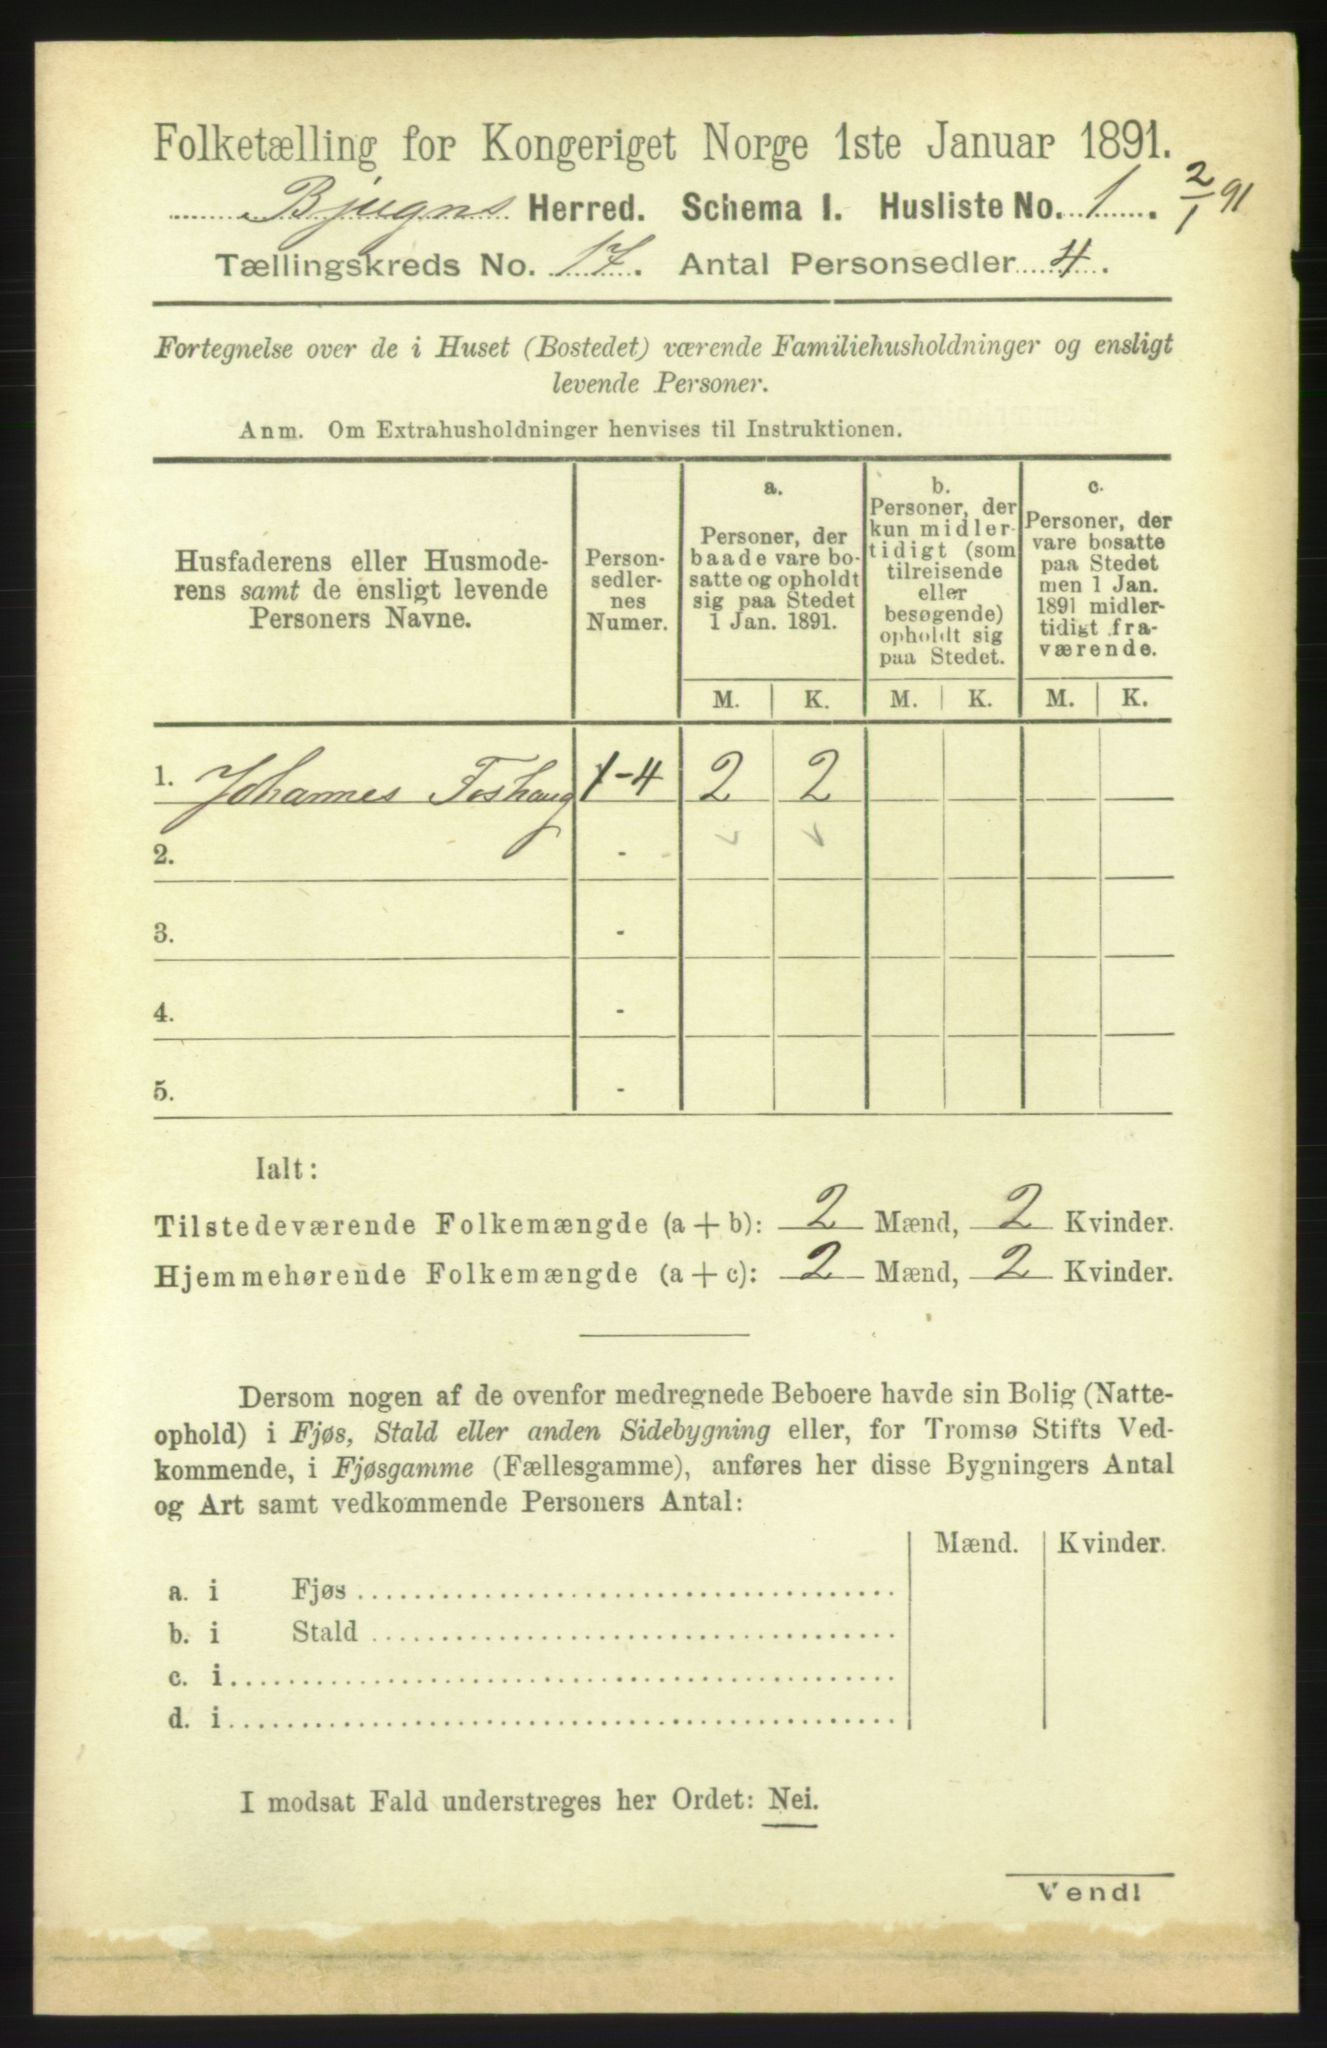 Folketælling for Kongeriget Norge 1ste Januar 1891.
Bjugns Herred. Schema I. Husliste No. 1. 2/1 91
Tællingskreds No. 17. Antal Personsedler 4.
Fortegnelse over de i Huset (Bostedet) værende Familiehusholdninger og ensligt
levende Personer.
Anm. Om Extrahusholdninger henvises til Instruktionen.
Husfaderens eller Husmode-
rens samt de ensligt levende
Personers Navne.
Person-
sedler-
nes
Numer.
a.
Personer, der
baade vare bo-
satte og opholdt
sig paa Stedet
1 Jan. 1891.
b.
Personer, der
kun midler-
tidigt (som
tilreisende
eller
besøgende)
opholdt sig
paa Stedet.
c.
Personer, der
vare bosatte
paa Stedet
men 1 Jan.
1891 midler-
tidigt fra-
værende.
M. K. M. K. M. K.
1. Johannes Foshaug 1-4 2 2
2. -
3. -
4. -
5. -
Ialt:
Tilstedeværende Folkemængde (a+b): 2 Mænd, 2 Kvinder.
Hjemmehørende Folkemængde (a+c): 2 Mænd, 2 Kvinder.
Dersom nogen af de ovenfor medregnede Beboere havde sin Bolig (Natte-
ophold) i Fjøs, Stald eller anden Sidebygning eller, for Tromsø Stifts Ved-
kommende, i Fjøsgamme (Fællesgamme), anføres her disse Bygningers Antal
og Art samt vedkommende Personers Antal:
Mænd. Kvinder.
a. i Fjøs
b. i Stald
c. i
d. i
I modsat Fald understreges her Ordet: Nei.
Vend!